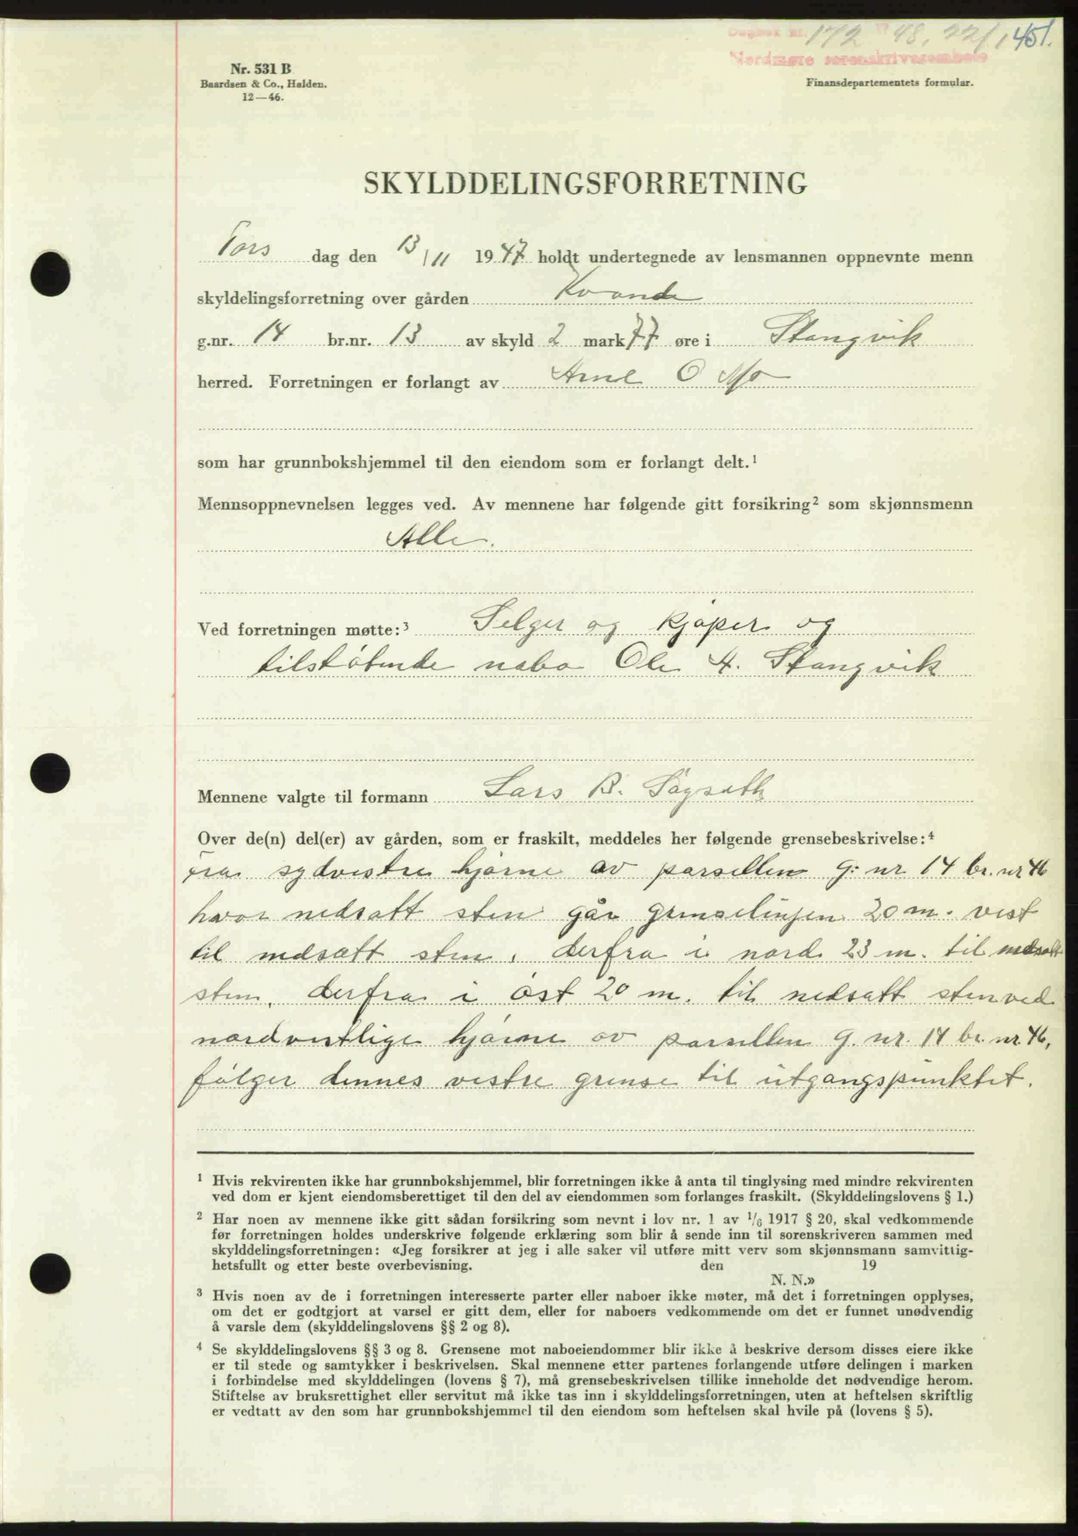 Dagbok nr. 172 48. 22/1 451.
Nordmøre sorenskriverembete
Nr. 531 B
Baardsen & Co., Halden.
12—46.
Finansdepartementets formular.
SKYLDDELINGSFORRETNING
Tors dag den 13/11 1947 holdt undertegnede av lensmannen oppnevnte menn
skyldelingsforretning over gården Kvande
g.nr. 14 br.nr. 13 av skyld 2 mark 77 øre i Stangvik
herred. Forretningen er forlangt av Arne O Mo
som har grunnbokshjemmel til den eiendom som er forlangt delt.¹
Mennsoppnevnelsen legges ved. Av mennene har følgende gitt forsikring² som skjønnsmenn
Alle.
Ved forretningen møtte:³ Selger og kjøper og
tilstøtende nabo Ole A. Stangvik
Mennene valgte til formann Lars B. Løgseth
Over de(n) del(er) av gården, som er fraskilt, meddeles her følgende grensebeskrivelse:⁴
Fra sydvestre hjørne av parsellen g: nr 14 br. nr 46
hvor nedsatt sten går grenselinjen 20 m. vest
til nedsatt sten, derfra i nord 23 m. til nedsatt
sten, derfra i øst 20 m. til nedsatt sten ved
nordvestlige hjørne av parsellen g. nr. 14 br. nr 46,
følger dennes vestre grense til utgangspunktet.
¹ Hvis rekvirenten ikke har grunnbokshjemmel, blir forretningen ikke å anta til tinglysing med mindre rekvirenten
ved dom er kjent eiendomsberettiget til den del av eiendommen som forlanges fraskilt. (Skylddelingslovens § 1.)
² Har noen av mennene ikke gitt sådan forsikring som nevnt i lov nr. 1 av 1/6 1917 § 20, skal vedkommende
før forretningen holdes underskrive følgende erklæring som blir å sende inn til sorenskriveren sammen med
skylddelingsforretningen: «Jeg forsikrer at jeg i alle saker vil utføre mitt verv som skjønnsmann samvittig-
hetsfullt og etter beste overbevisning. den 19
N. N.»
³ Hvis noen av de i forretningen interesserte parter eller naboer ikke møter, må det i forretningen opplyses,
om det er godtgjort at varsel er gitt dem, eller for naboers vedkommende om det er funnet unødvendig
å varsle dem (skylddelingslovens §§ 2 og 8).
⁴ Se skylddelingslovens §§ 3 og 8. Grensene mot naboeiendommer blir ikke å beskrive dersom disses eiere ikke
er til stede og samtykker i beskrivelsen. Skal mennene etter partenes forlangende utføre delingen i marken
i forbindelse med skylddelingen (lovens § 7), må grensebeskrivelsen tillike inneholde det nødvendige herom.
Stiftelse av bruksrettighet eller servitut må ikke tas inn i skylddelingsforretningen, uten at heftelsen skriftlig
er vedtatt av den som har grunnbokshjemmel til den eiendom som heftelsen skal hvile på (lovens § 5).